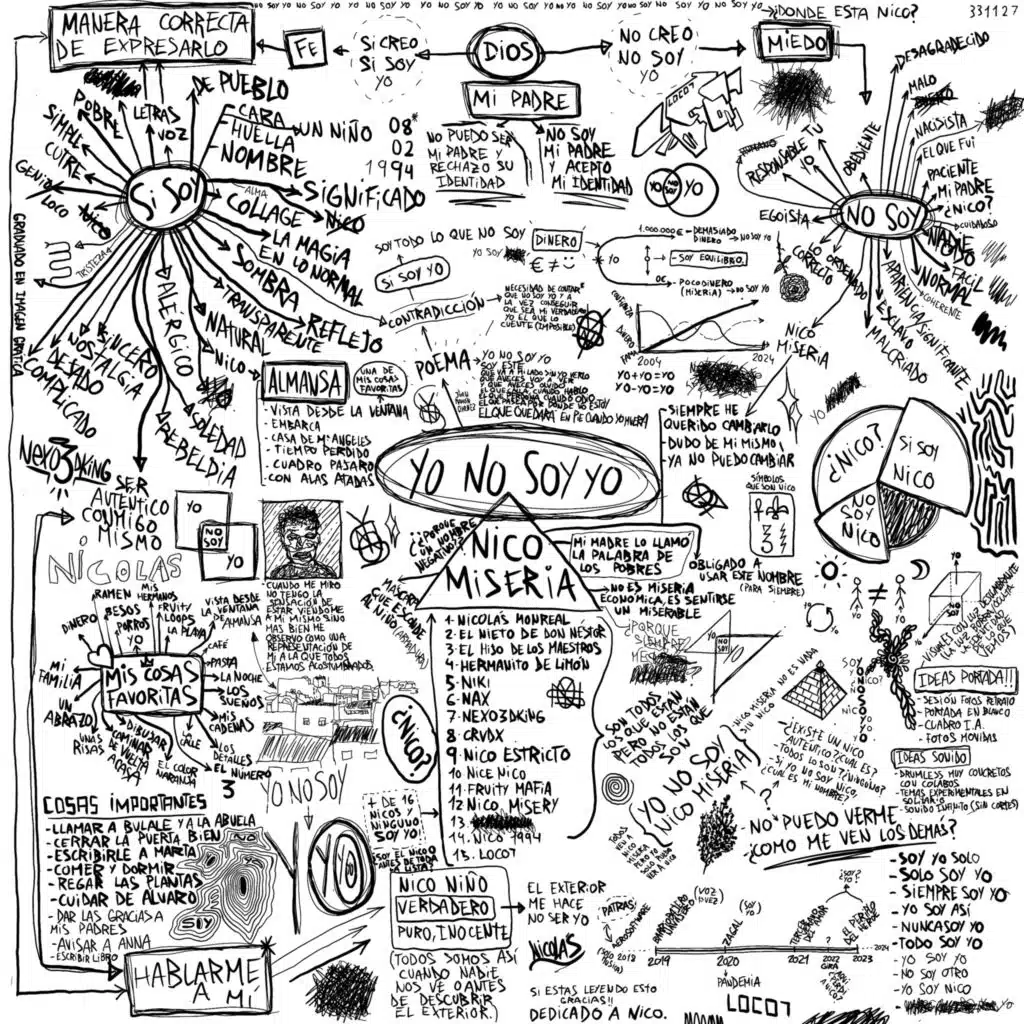 NO SOY YO NO SOY YO NO SOY YO NO SOY YO
¿DONDE ESTA NICO?
331127
MANERA CORRECTA
DE EXPRESARLO
FE
SI CREO
SI SOY
YO
DIOS
NO CREO
NO SOY
YO
MIEDO
MI PADRE
NO PUEDO SER
MI PADRE Y
RECHAZO SU
IDENTIDAD
NO SOY
MI PADRE
Y ACEPTO
MI IDENTIDAD
LOCO7
YO
NO SOY
YO
SI SOY
DE PUEBLO
LETRAS
VOZ
POBRE
SIMPLE
CUTRE
GENIO
LOCO
TRISTEZA
CARA
HUELLA
NOMBRE
UN NIÑO
08
02
1994
SIGNIFICADO
NICO
ALMA
COLLAGE
LA MAGIA
EN LO NORMAL
SOMBRA
REFLEJO
TRANSPARENTE
NATURAL
NICO
ALÉRGICO
SOLEDAD
REBELDIA
SINCERO
NOSTALGIA
DESEADO
COMPLICADO
GRADUADO EN IMAGEN GRAFICA
NO SOY
DESAGRADECIDO
MALO
NACISISTA
EL QUE FUÍ
PACIENTE
MI PADRE
¿NICO?
CUIDADOSO
NADIE
TODO
FACIL
NORMAL
COHERENTE
INSIGNIFICANTE
APARIENCIA
ESCLAVO
MALCRIADO
LO ORDENADO
CORRECTO
EGOISTA
RESPONSABLE
TU
YO
OBEDIENTE
NICO
MISERIA
SOY TODO LO QUE NO SOY
YO SOY
SI SOY YO
CONTRADICCIÓN
DINERO
€ ≠
1.000.000€ - DEMASIADO
DINERO → NO SOY YO
- SOY EQUILIBRO
0€ - POCO DINERO
(MISERIA) → NO SOY YO
NECESIDAD DE CONTAR
QUE NO SOY YO Y A
LA VEZ CONSEGUIR
QUE SEA MI VERDADERO
YO EL QUE LO
CUENTE (IMPOSIBLE)
DINERO
FAMA
2004
2024
YO+YO=YO
YO-YO=YO
POEMA
JUAN RAMÓN JIMENEZ
YO NO SOY YO
SOY ESTE
QUE VA A MI LADO SIN YO VERLO
QUE AVECES VOY A VER
Y QUE AVECES OLVIDO
EL QUE QUEDARA EN PIE CUANDO YO MUERA
ALMANSA
UNA DE
MIS COSAS
FAVORITAS
- VISTA DESDE LA VENTANA
- EMBARCA
- CASA DE Mª ANGELES
- TIEMPO PERDIDO
- CUADRO PAJARO
CON ALAS ATADAS
- SIEMPRE HE
QUERIDO CAMBIARLO
- DUDO DE MI MISMO
- YA NO PUEDO CAMBIAR
YO
YO NO SOY YO
¿NICO?
SI SOY
NICO
NO
SOY
NICO
NEXO3DKING
SER
AUTENTICO
CONMIGO
MISMO
YO
NO
SOY
YO
NICOLAS
SÍMBOLOS
QUE SON NICO
¿PORQUE
UN NOMBRE
NEGATIVO?
MASCARA
QUE ESCONDE
AL NIÑO
NICO
MISERIA
MI MADRE LO LLAMO
LA PALABRA DE
LOS POBRES
OBLIGADO A
USAR ESTE NOMBRE
(PARA SIEMPRE)
- NO ES MISERIA
ECONOMICA, ES SENTIRSE
UN MISERABLE
1- NICOLÁS MONREAL
2- EL NIETO DE DON NÉSTOR
3- EL HIJO DE LOS MAESTROS
4- HERMANITO DE LIMÓN
5- NIKI
6- NAX
7- NEXO3DKING
8- CRVDX
9- NICO ESTRICTO
10 NICE NICO
11- FRUITY MAFIA
12 NICO MISERY
13-
14- NICO 1994
15- LOCO7
¿PORQUE
SIEMPRE
YO
NO
SOY
YO
SON TODOS
LO QUE ESTÁN
PERO NO ESTÁN
TODOS LOS QUE
SON
NICO MISERIA NO ES NADA
SIN NICO
YO NO SOY
NICO MISERIA
CUANDO ME MIRO
NO TENGO LA
SENSACIÓN DE
ESTAR VIENDOME
A MI MISMO SINO
MAS BIEN ME
OBSERVO COMO UNA
REPRESENTACION DE
MI A LA QUE TODOS
ESTAMOS ACOSTUMBRADOS
MIS COSAS
FAVORITAS
RAMEN
MIS
HERMANOS
VISTA DESDE
LA VENTANA
DE ALMANSA
DINERO
BESOS
PORROS
YO
FRUITY
LOOPS
LA PLAYA
CAFÉ
PASTA
LA NOCHE
LOS
SUEÑOS
MIS
CADENAS
LOS
DETALLES
EL NUMERO
3
MI
FAMILIA
UN
ABRAZO
UNAS
RISAS
DIBUJAR
CAMINAR
DE VUELTA
A CASA
LA
CALLE
EL COLOR
NARANJA
¿NICO?
YO NO SOY
YO
YO
COSAS IMPORTANTES
- LLAMAR A BULALE Y A LA ABUELA
- CERRAR LA PUERTA BIEN
- ESCRIBIRLE A MARTA
- COMER Y DORMIR
- REGAR LAS PLANTAS
- CUIDAR DE ALVARO
- DAR LAS GRACIAS A
MIS PADRES
- AVISAR A ANNA
- ESCRIBIR LIBRO
NO
SOY
+ DE 16
NICOS Y
NINGUNO
SOY YO
¿SOY EL NICO
ANTES DE TODA
LA LISTA?
NICO NIÑO
VERDADERO
PURO, INOCENTE
(TODOS SOMOS ASI
CUANDO NADIE
NOS VE O ANTES
DE DESCUBRIR
EL EXTERIOR.)
EL EXTERIOR
ME HACE
NO SER YO
NICOLÁS
SI ESTAS LEYENDO ESTO
GRACIAS!!
DEDICADO A NICO.
HABLARME
A MÍ
≠
YO
YO
NO
SOY
SOY
NICO?
YONOSOYYO
NICO
¿EXISTE UN NICO
AUTENTICO? ¿CUAL ES?
¿TODOS LO SON? ¿NINGUNO?
- SI YO NO SOY NICO
¿CUAL ES MI NOMBRE?
IDEAS PORTADA!!
- SESIÓN FOTOS RETRATO
- PORTADA EN BLANCO
- CUADRO I.A.
- FOTOS MOVIDAS
IDEAS SONIDO
- DRUMLESS MUY CONCRETOS
CON COLABOS
- TEMAS EXPERIMENTALES EN
SOLITARIO
- SONIDO INFINITO (SIN CORTES)
- NO PUEDO VERME
¿COMO ME VEN LOS DEMÁS?
- SOY YO SOLO
- SOLO SOY YO
- SIEMPRE SOY YO
- YO SOY ASÍ
- NUNCA SOY YO
- TODO SOY YO
- YO SOY YO
- NO SOY OTRO
- YO SOY NICO
PATRAS
(VOZ
1ª VEZ)
(SOY
YO)
ZAGAL
¿SOY
YO?
EL PERRO
DEL HAMBRE
2019
2020
2021
2022
2023
2024
PANDEMIA
GIRA
LOCO7